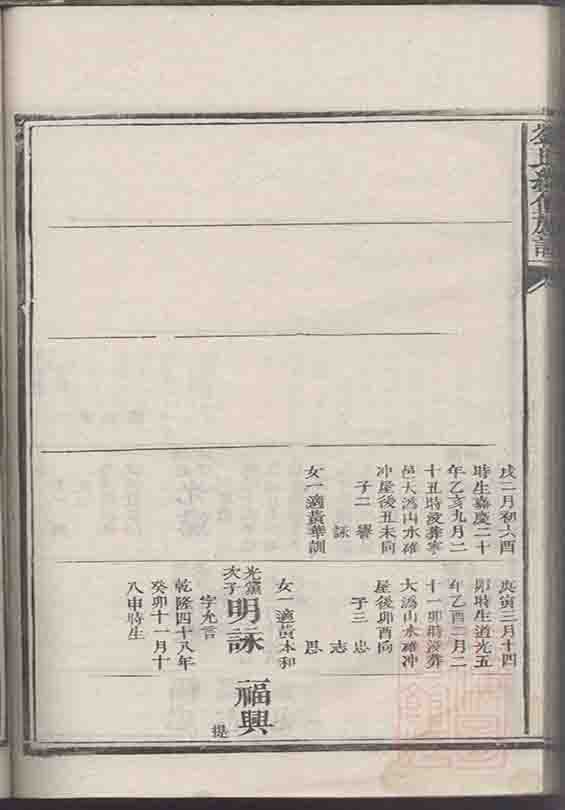 戌二月初六酉
時生嘉慶二十
年乙亥九月二
十丑時沒葬寧
邑大溈山水碓
冲屋後丑未向
子二 譽
詠
女一適黃華訓
庚寅三月十四
卯時生道光五
年乙酉二月二
十一卯時沒葬
大溈山水碓冲
屋後卯酉向
子三 忠
志
恩
女一適黃本和
光黨次子 明詠 福興
字允言
乾隆四十八年
癸卯十一月十
八申時生
提